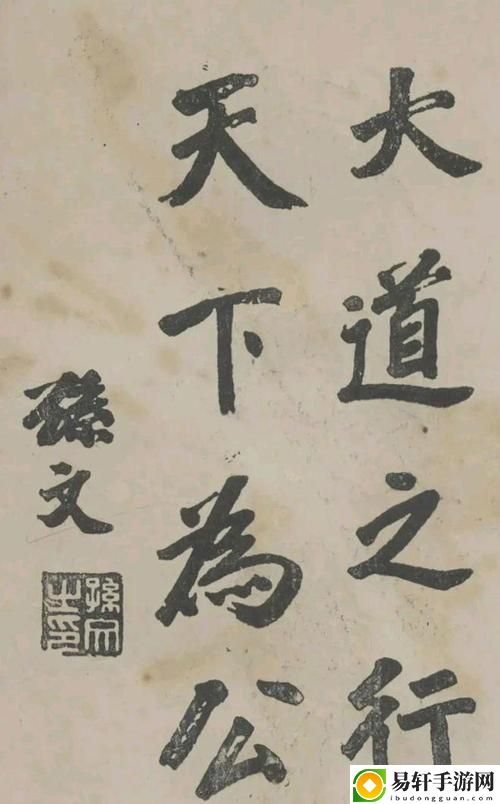 大道之行
天下為公
孫文
孫文之印
易轩手游网
ibudongguan.com